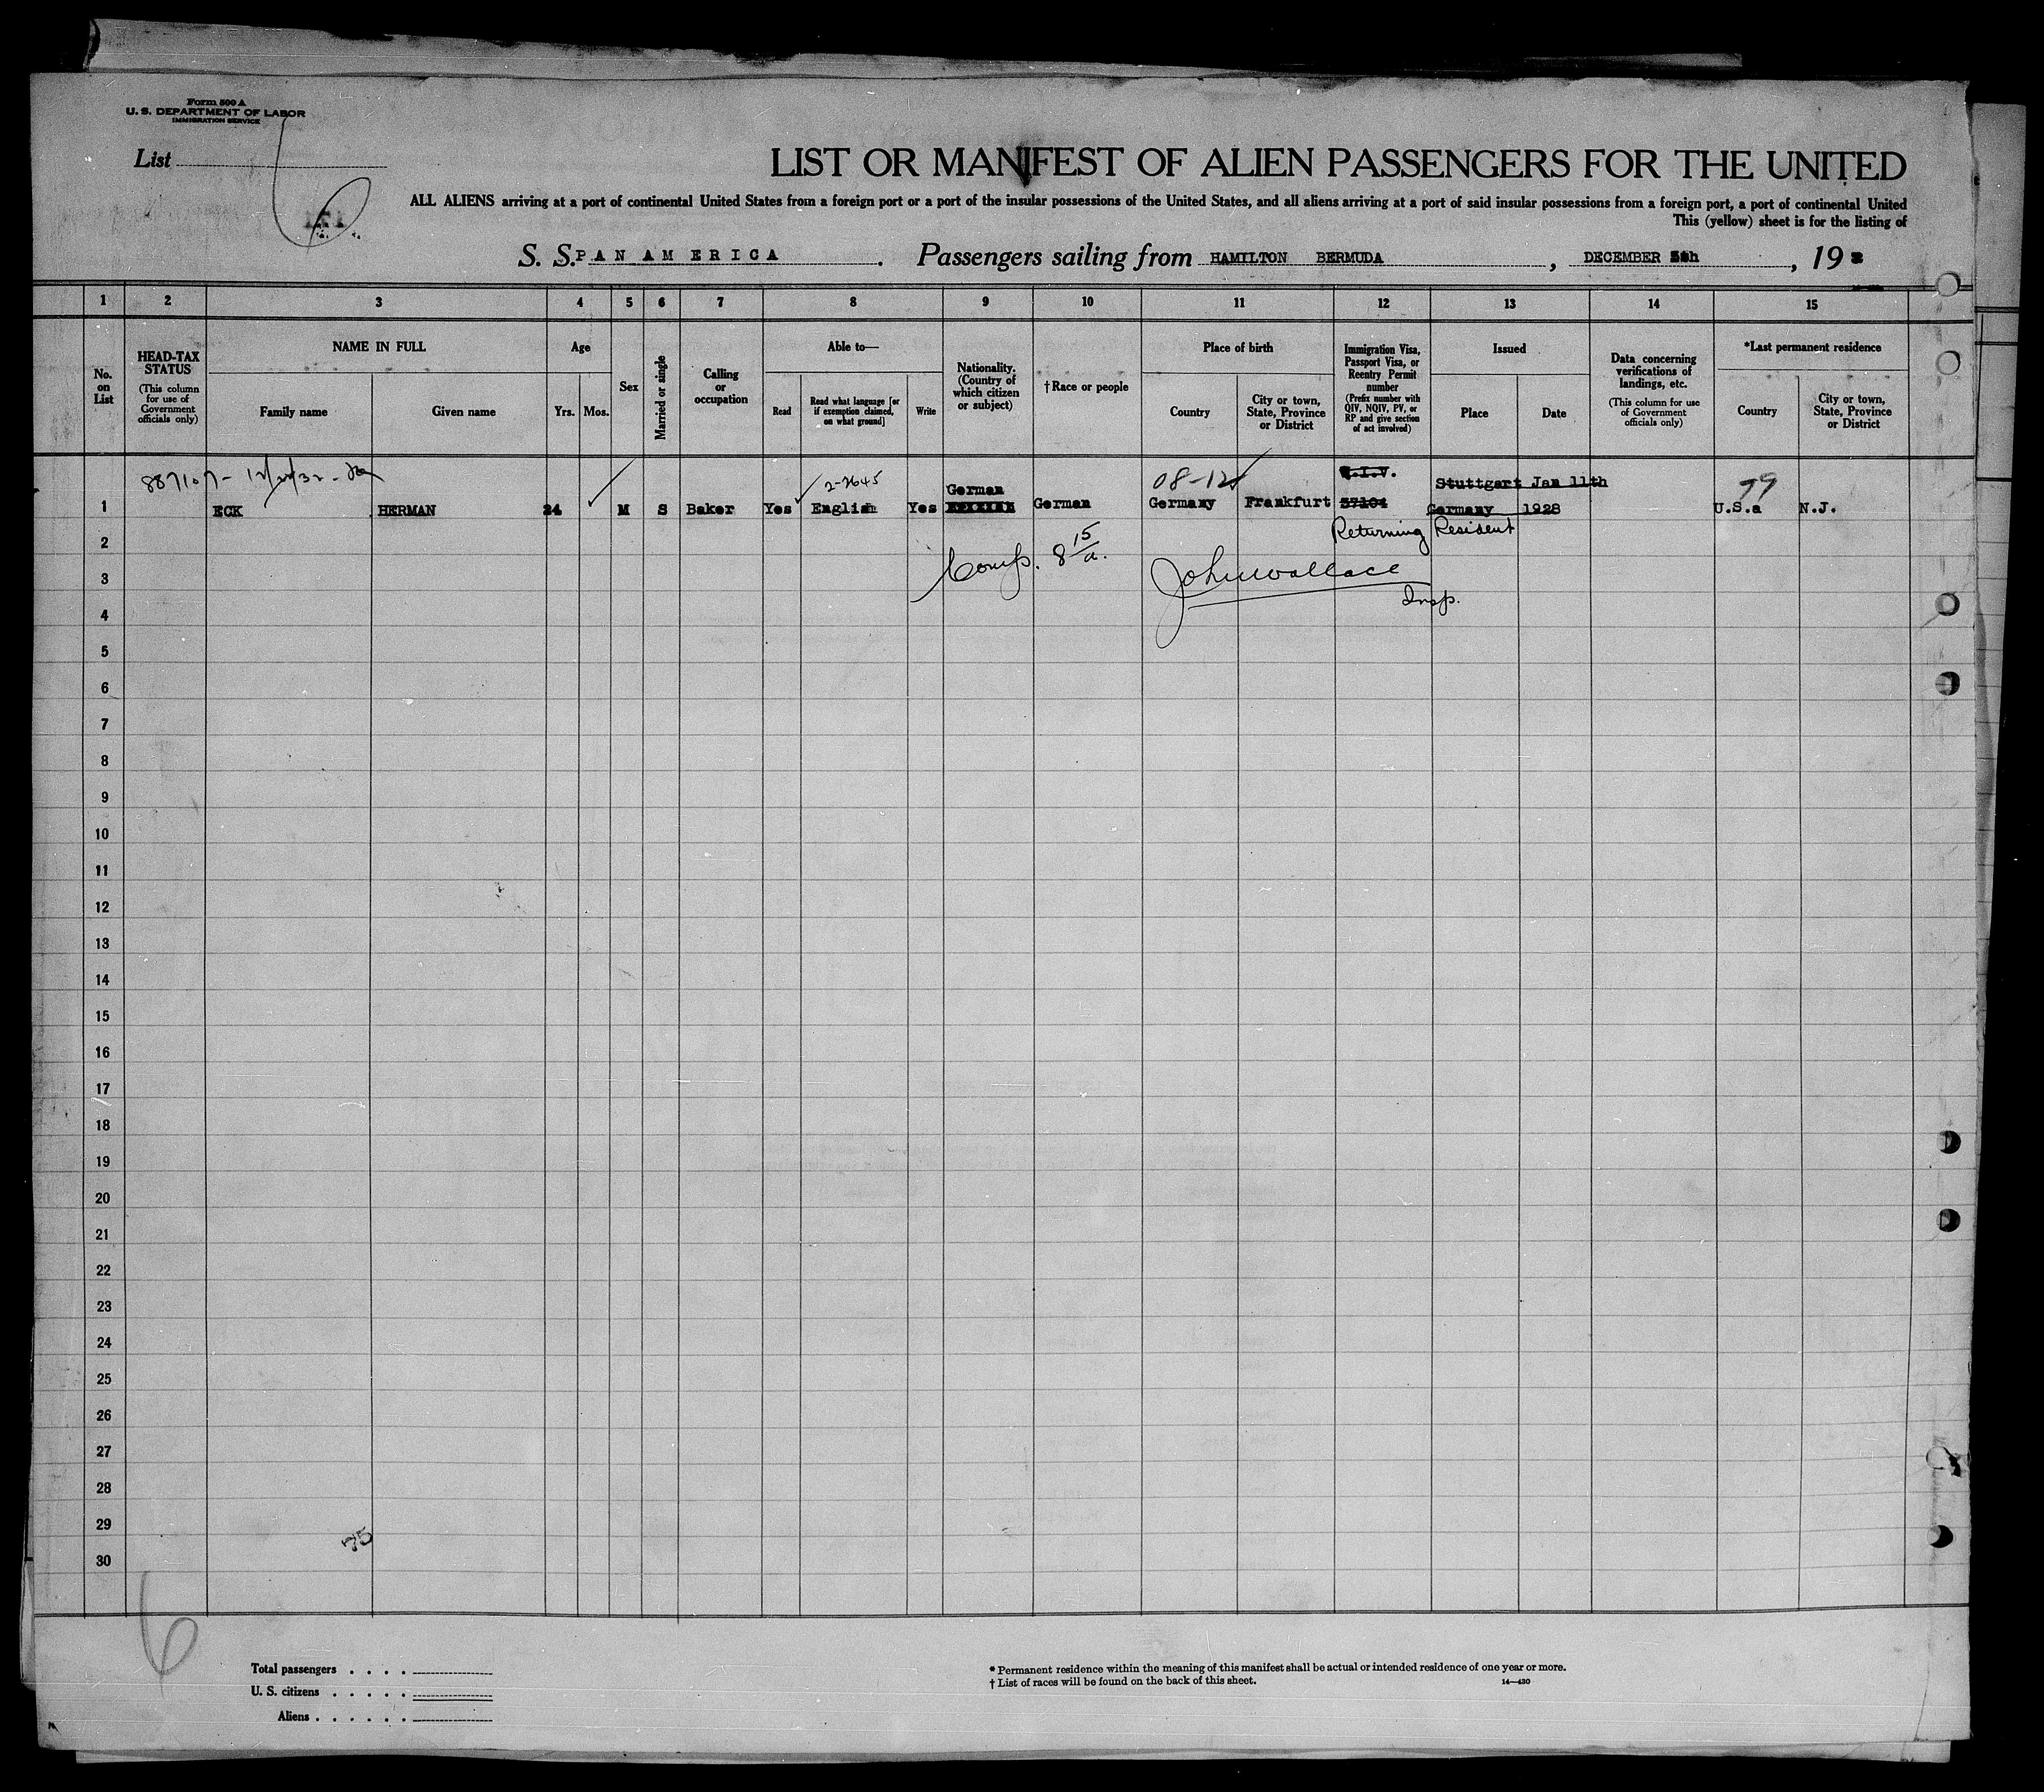 Form 500 A
U. S. DEPARTMENT OF LABOR
IMMIGRATION SERVICE
List
LIST OR MANIFEST OF ALIEN PASSENGERS FOR THE UNITED
ALL ALIENS arriving at a port of continental United States from a foreign port or a port of the insular possessions of the United States, and all aliens arriving at a port of said insular possessions from a foreign port, a port of continental United
This (yellow) sheet is for the listing of
S. S. PAN AMERICA . Passengers sailing from HAMILTON BERMUDA , DECEMBER , 19
1 2 3 4 5 6 7 8 9 10 11 12 13 14 15
No. on List
HEAD-TAX STATUS (This column for use of Government officials only)
NAME IN FULL
Family name
Given name
Age
Yrs. Mos.
Sex
Married or single
Calling or occupation
Able to—
Read
Read what language [or if exemption claimed, on what ground]
Write
Nationality. (Country of which citizen or subject)
† Race or people
Place of birth
Country
City or town, State, Province or District
Immigration Visa, Passport Visa, or Reentry Permit number (Prefix number with QIV, NQIV, PV, or RP and give section of act involved)
Issued
Place
Date
Data concerning verifications of landings, etc. (This column for use of Government officials only)
*Last permanent residence
Country
City or town, State, Province or District
2-2645
08-12
79
German
Stuttgart Jan 11th
1 ECK HERMAN 24 M S Baker Yes English Yes German Germany Frankfurt 57104 Germany 1928 U.S.a N.J.
Returning Resident
2
Comp. 8 15/a.
John Wallace
3
Insp.
4
5
6
7
8
9
10
11
12
13
14
15
16
17
18
19
20
21
22
23
24
25
26
27
28
29
75
30
6
Total passengers . . . .
U. S. citizens . . . . .
Aliens . . . . . .
* Permanent residence within the meaning of this manifest shall be actual or intended residence of one year or more.
† List of races will be found on the back of this sheet.
14—430